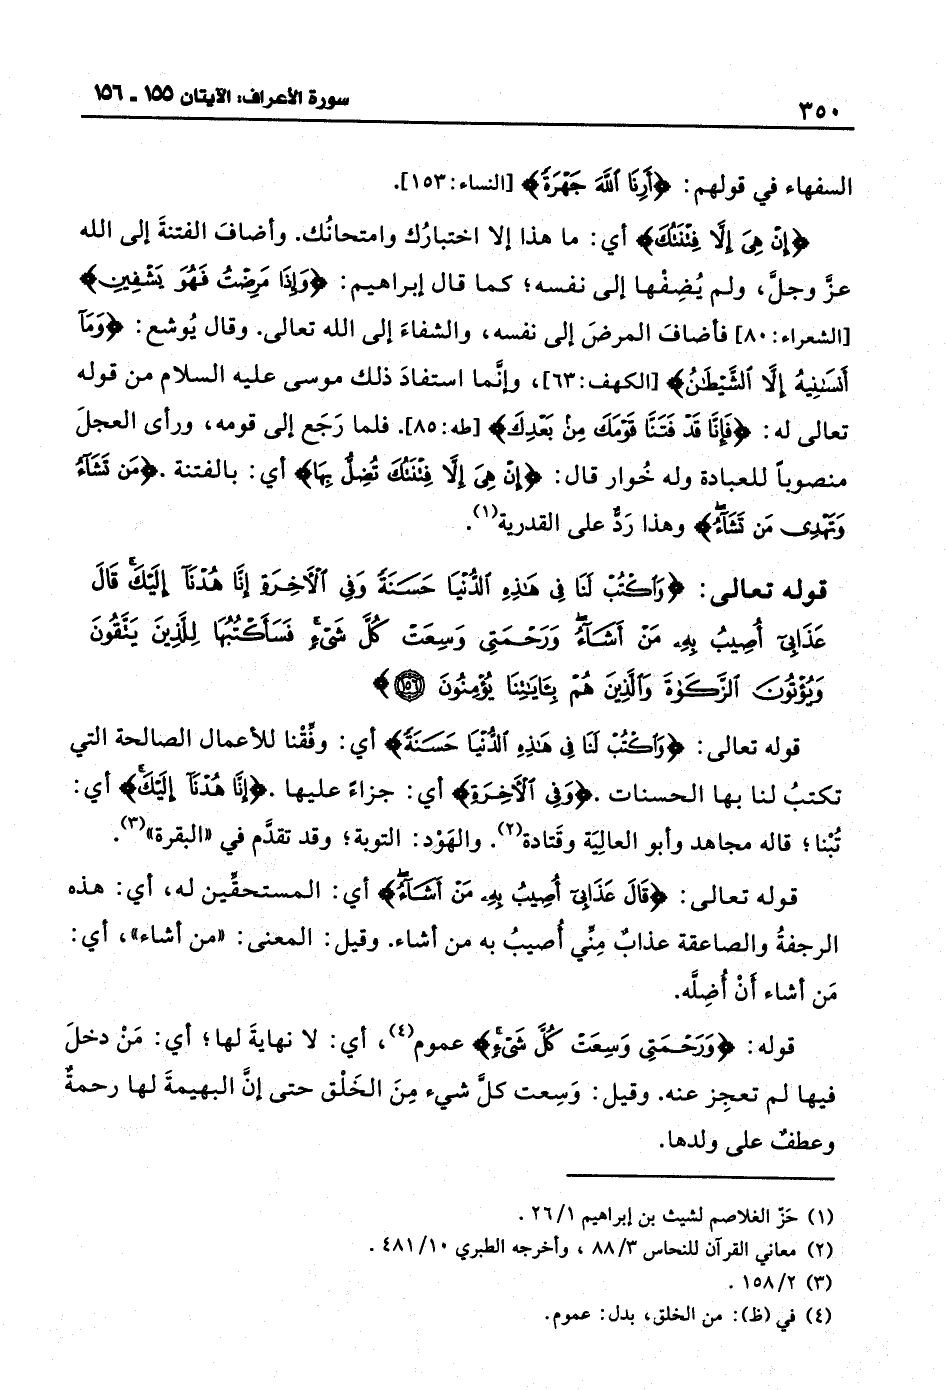 ٣٥٠
سورة الأعراف: الآيتان ١٥٥ ـ ١٥٦
السفهاء في قولهم: ﴿أَرِنَا ٱللَّهَ جَهْرَةً﴾ [النساء: ١٥٣].
﴿إِنْ هِىَ إِلَّا فِتْنَتُكَ﴾ أي: ما هذا إلا اختبارُك وامتحانُك. وأضافَ الفتنةَ إلى الله
عزَّ وجلَّ، ولم يُضِفْها إلى نفسه؛ كما قال إبراهيم: ﴿وَإِذَا مَرِضْتُ فَهُوَ يَشْفِينِ﴾
[الشعراء: ٨٠] فأضافَ المرضَ إلى نفسه، والشفاءَ إلى الله تعالى. وقال يُوشع: ﴿وَمَآ
أَنسَىٰنِيهُ إِلَّا ٱلشَّيْطَٰنُ﴾ [الكهف: ٦٣]، وإنَّما استفادَ ذلك موسى عليه السلام من قوله
تعالى له: ﴿فَإِنَّا قَدْ فَتَنَّا قَوْمَكَ مِنۢ بَعْدِكَ﴾ [طه: ٨٥]. فلما رَجَع إلى قومه، ورأى العجلَ
منصوباً للعبادة وله خُوار قال: ﴿إِنْ هِىَ إِلَّا فِتْنَتُكَ تُضِلُّ بِهَا﴾ أي: بالفتنة. ﴿مَن تَشَآءُ
وَتَهْدِى مَن تَشَآءُۖ﴾ وهذا رَدٌّ على القدرية(١).
قوله تعالى: ﴿وَٱكْتُبْ لَنَا فِى هَٰذِهِ ٱلدُّنْيَا حَسَنَةً وَفِى ٱلْأَخِرَةِ إِنَّا هُدْنَآ إِلَيْكَۚ قَالَ
عَذَابِىٓ أُصِيبُ بِهِۦ مَنْ أَشَآءُۖ وَرَحْمَتِى وَسِعَتْ كُلَّ شَىْءٍۚ فَسَأَكْتُبُهَا لِلَّذِينَ يَتَّقُونَ
وَيُؤْتُونَ ٱلزَّكَوٰةَ وَٱلَّذِينَ هُم بِـَٔايَٰتِنَا يُؤْمِنُونَ ١٥٦﴾
قوله تعالى: ﴿وَٱكْتُبْ لَنَا فِى هَٰذِهِ ٱلدُّنْيَا حَسَنَةً﴾ أي: وفِّقْنا للأعمال الصالحة التي
تكتبُ لنا بها الحسنات. ﴿وَفِى ٱلْأَخِرَةِ﴾ أي: جزاءً عليها. ﴿إِنَّا هُدْنَآ إِلَيْكَۚ﴾ أي:
تُبْنا؛ قاله مجاهد وأبو العالِيَة وقَتادة(٢). والهَوْد: التوبة؛ وقد تقدَّم في «البقرة»(٣).
قوله تعالى: ﴿قَالَ عَذَابِىٓ أُصِيبُ بِهِۦ مَنْ أَشَآءُۖ﴾ أي: المستحقِّين له، أي: هذه
الرجفةُ والصاعقة عذابٌ مِنِّي أُصيبُ به من أشاء. وقيل: المعنى: «من أشاء»، أي:
مَن أشاء أَنْ أُضِلَّه.
قوله: ﴿وَرَحْمَتِى وَسِعَتْ كُلَّ شَىْءٍۚ﴾ عموم(٤)، أي: لا نهايةَ لها؛ أي: مَنْ دخلَ
فيها لم تعجِز عنه. وقيل: وَسِعت كلَّ شيء مِنَ الخَلْق حتى إنَّ البهيمةَ لها رحمةٌ
وعطفٌ على ولدها.
(١) حَزّ الغلاصم لشيث بن إبراهيم ٢٦/١ .
(٢) معاني القرآن للنحاس ٨٨/٣ ، وأخرجه الطبري ٤٨١/١٠ .
(٣) ١٥٨/٢ .
(٤) في (ظ): من الخلق، بدل: عموم.